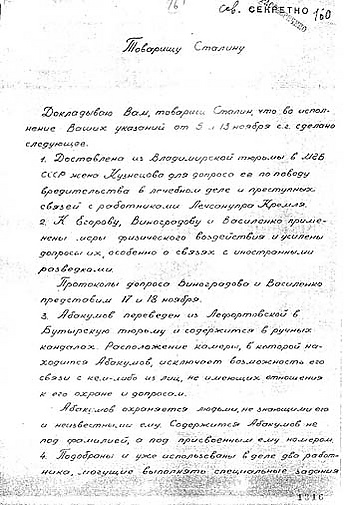 Сов. СЕКРЕТНО 160
Товарищу Сталину
Докладываю Вам, товарищ Сталин, что во испол-
нение Ваших указаний от 5 и 13 ноября с.г. сделано
следующее.
1. Доставлена из Владимирской тюрьмы в МГБ
СССР жена Кузнецова для допроса ее по поводу
вредительства в лечебном деле и преступных
связей с работниками Лечсанупра Кремля.
2. К Егорову, Виноградову и Василенко приме-
нены меры физического воздействия и усилены
допросы их, особенно о связях с иностранными
разведками.
Протоколы допроса Виноградова и Василенко
представим 17 и 18 ноября.
3. Абакумов переведен из Лефортовской в
Бутырскую тюрьму и содержится в ручных
кандалах. Расположение камеры, в которой на-
ходится Абакумов, исключает возможность его
связи с кем-либо из лиц, не имеющих отношения
к его охране и допросам.
Абакумов охраняется людьми, не знающими его
и неизвестными ему. Содержится Абакумов не
под фамилией, а под присвоенным ему номером.
4. Подобраны и уже использованы в деле два работ-
ника, могущие выполнять специальные задания